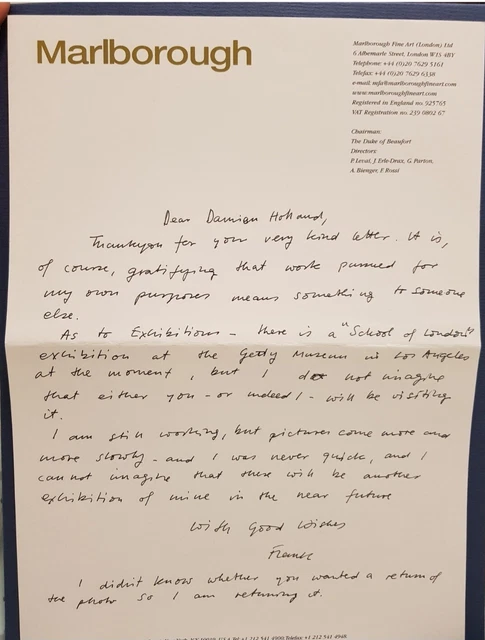 Marlborough
Marlborough Fine Art (London) Ltd
6 Albemarle Street, London W1S 4BY
Telephone +44 (0)20 7629 5161
Telefax: +44 (0)20 7629 6338
e-mail: mfa@marlboroughfineart.com
www.marlboroughfineart.com
Registered in England no. 925765
VAT Registration no. 239 0802 67
Chairman:
The Duke of Beaufort
Directors:
P. Levai, J. Erle-Drax, G. Parton,
A. Bienger, F. Rossi
Dear Damian Holland,
Thankyou for your very kind letter. It is,
of course, gratifying that work pursued for
my own purposes means something to someone
else.
As to Exhibitions – there is a "School of London"
exhibition at the Getty Museum in Los Angeles
at the moment, but I do not imagine
that either you – or indeed I – will be visiting
it.
I am still working, but pictures come more and
more slowly – and I was never quick, and I
can not imagine that there will be another
exhibition of mine in the near future
With Good Wishes
Frank
I didn't know whether you wanted a return of
the photo so I am returning it.
U.S.A. Tel +1 212 541 4900 Telefax +1 212 541 4948